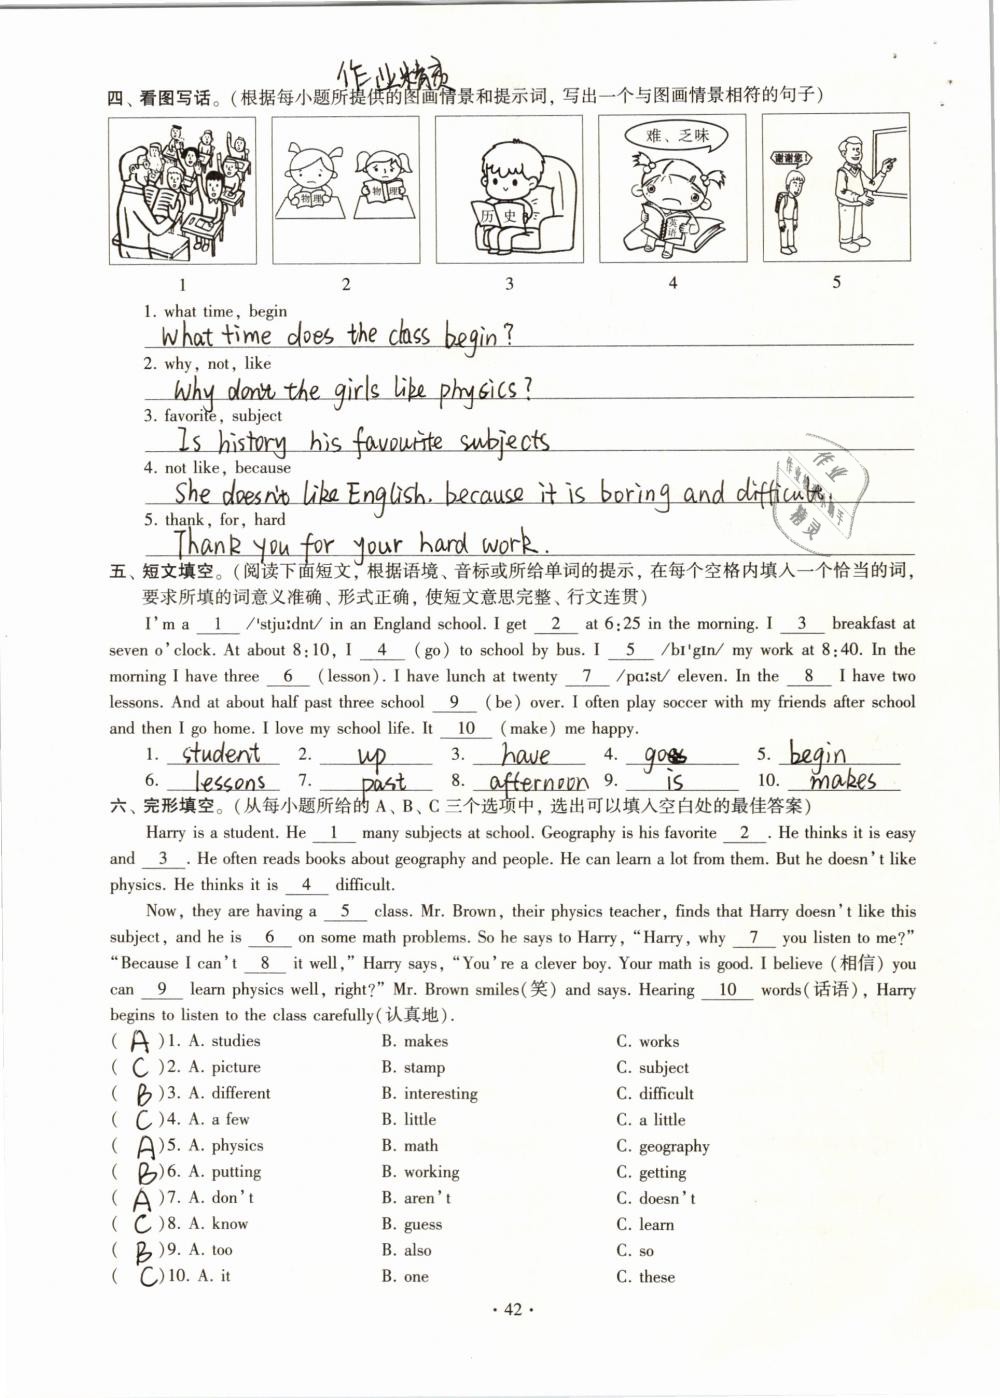 作业精灵
四、看图写话。(根据每小题所提供的图画情景和提示词，写出一个与图画情景相符的句子)
物理
物理
历史
难、乏味
英语
谢谢您!
1 2 3 4 5
1. what time, begin
What time does the class begin?
2. why, not, like
Why don't the girls like physics?
3. favorite, subject
Is history his favourite subjects
4. not like, because
She doesn't like English. because it is boring and difficult.
5. thank, for, hard
Thank you for your hard work.
作业
精灵
五、短文填空。(阅读下面短文，根据语境、音标或所给单词的提示，在每个空格内填入一个恰当的词，
要求所填的词意义准确、形式正确，使短文意思完整、行文连贯)
I'm a 1 /'stju:dnt/ in an England school. I get 2 at 6:25 in the morning. I 3 breakfast at
seven o'clock. At about 8:10, I 4 (go) to school by bus. I 5 /bɪ'gɪn/ my work at 8:40. In the
morning I have three 6 (lesson). I have lunch at twenty 7 /pɑ:st/ eleven. In the 8 I have two
lessons. And at about half past three school 9 (be) over. I often play soccer with my friends after school
and then I go home. I love my school life. It 10 (make) me happy.
1. student 2. up 3. have 4. go 5. begin
6. lessons 7. past 8. afternoon 9. is 10. makes
六、完形填空。(从每小题所给的 A、B、C 三个选项中，选出可以填入空白处的最佳答案)
Harry is a student. He 1 many subjects at school. Geography is his favorite 2 . He thinks it is easy
and 3 . He often reads books about geography and people. He can learn a lot from them. But he doesn't like
physics. He thinks it is 4 difficult.
Now, they are having a 5 class. Mr. Brown, their physics teacher, finds that Harry doesn't like this
subject, and he is 6 on some math problems. So he says to Harry, "Harry, why 7 you listen to me?"
"Because I can't 8 it well," Harry says, "You're a clever boy. Your math is good. I believe (相信) you
can 9 learn physics well, right?" Mr. Brown smiles(笑) and says. Hearing 10 words(话语), Harry
begins to listen to the class carefully(认真地).
( A )1. A. studies B. makes C. works
( C )2. A. picture B. stamp C. subject
( B )3. A. different B. interesting C. difficult
( C )4. A. a few B. little C. a little
( A )5. A. physics B. math C. geography
( B )6. A. putting B. working C. getting
( A )7. A. don't B. aren't C. doesn't
( C )8. A. know B. guess C. learn
( B )9. A. too B. also C. so
( C )10. A. it B. one C. these
· 42 ·